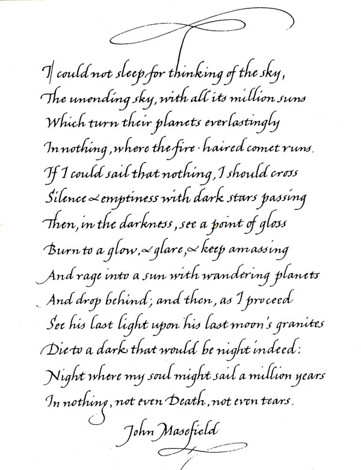 I could not sleep for thinking of the sky,
The unending sky, with all its million suns
Which turn their planets everlastingly
In nothing, where the fire-haired comet runs.
If I could sail that nothing, I should cross
Silence & emptiness with dark stars passing
Then, in the darkness, see a point of gloss
Burn to a glow, & glare, & keep amassing
And rage into a sun with wandering planets
And drop behind; and then, as I proceed
See his last light upon his last moon's granites
Die to a dark that would be night indeed:
Night where my soul might sail a million years
In nothing, not even Death, not even tears.
John Masefield